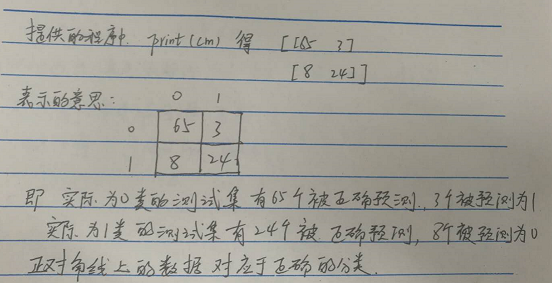 提供的程序中. print(cm) 得 [[65 3]
[8 24]]
表示的意思: 0 1
0 65 3
1 8 24
即 实际为0类的测试集有65个被正确预测, 3个被预测为1
实际为1类的测试集有24个被正确预测, 8个被预测为0
正对角线上的数据对应于正确的分类.